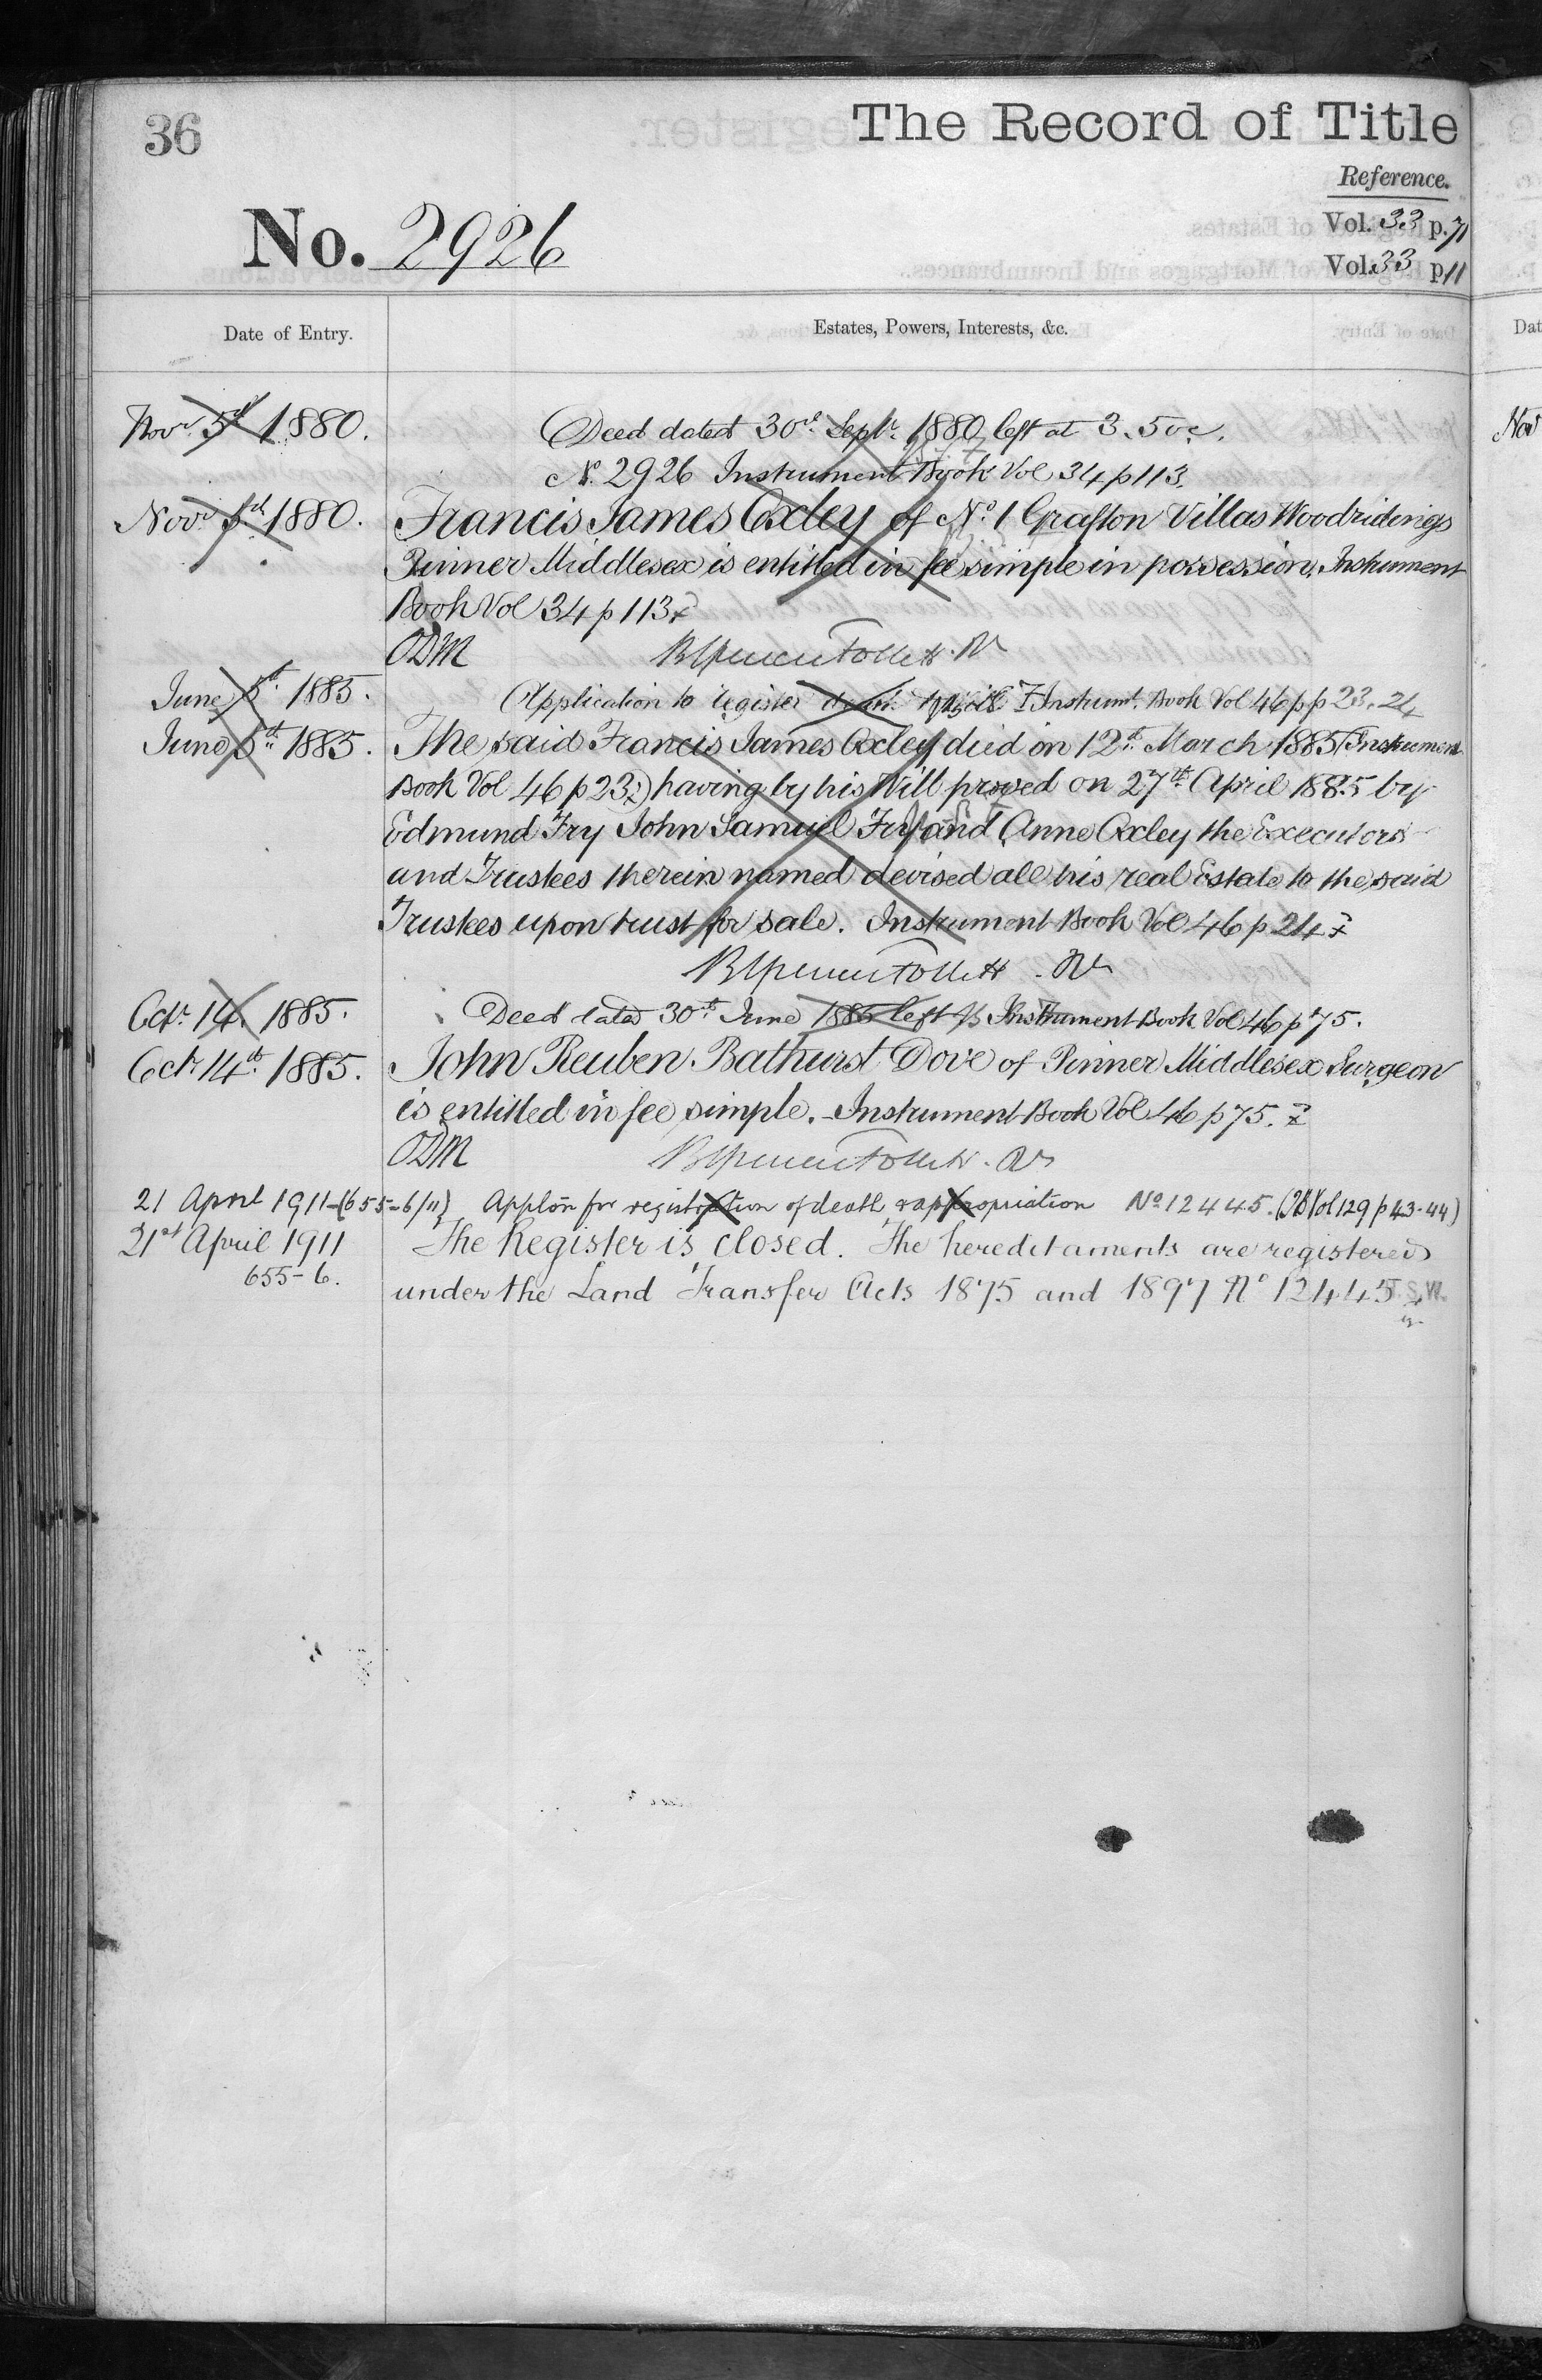 36
The Record of Title
Reference.
No. 2926
Vol. 33 p. 71
Vol. 33 p 11
Date of Entry.
Estates, Powers, Interests, &c.
Novr. 5th 1880.
Deed dated 30th Septr. 1880 left at 3.50
No. 2926 Instrument Book Vol 34 p 113.
Novr 5th 1880.
Francis James Oxley of No. 1 Grafton Villas Woodridings
Pinner Middlesex is entitled in fee simple in possession. Instrument
Book Vol 34 p 113
ODM
June 5th 1885.
Application to register death & will Instrumt. Book Vol 46 pp 23. 24
June 5th 1885.
The said Francis James Oxley died on 12th March 1885 (Instrument
Book Vol 46 p 23) having by his Will proved on 27th April 1885 by
Edmund Fry John Samuel Fry and Anne Oxley the Executors
and Trustees therein named devised all his real Estate to the said
Trustees upon trust for sale. Instrument Book Vol 46 p 24
Octr. 14. 1885.
Deed dated 30th June 1885 left Instrument Book Vol 46 p 75.
Octr 14th 1885.
John Reuben Bathurst Dove of Pinner Middlesex Surgeon
is entitled in fee simple. Instrument Book Vol 46 p 75.
ODM
21 April 1911 (655-6/11) Applon for registration of death & appropriation No 12445. (IB Vol 129 p 43-44)
21st April 1911
The Register is closed. The hereditaments are registered
655-6.
under the Land Transfer Acts 1875 and 1897 No 12445 J.S.W.
Dat
Nov